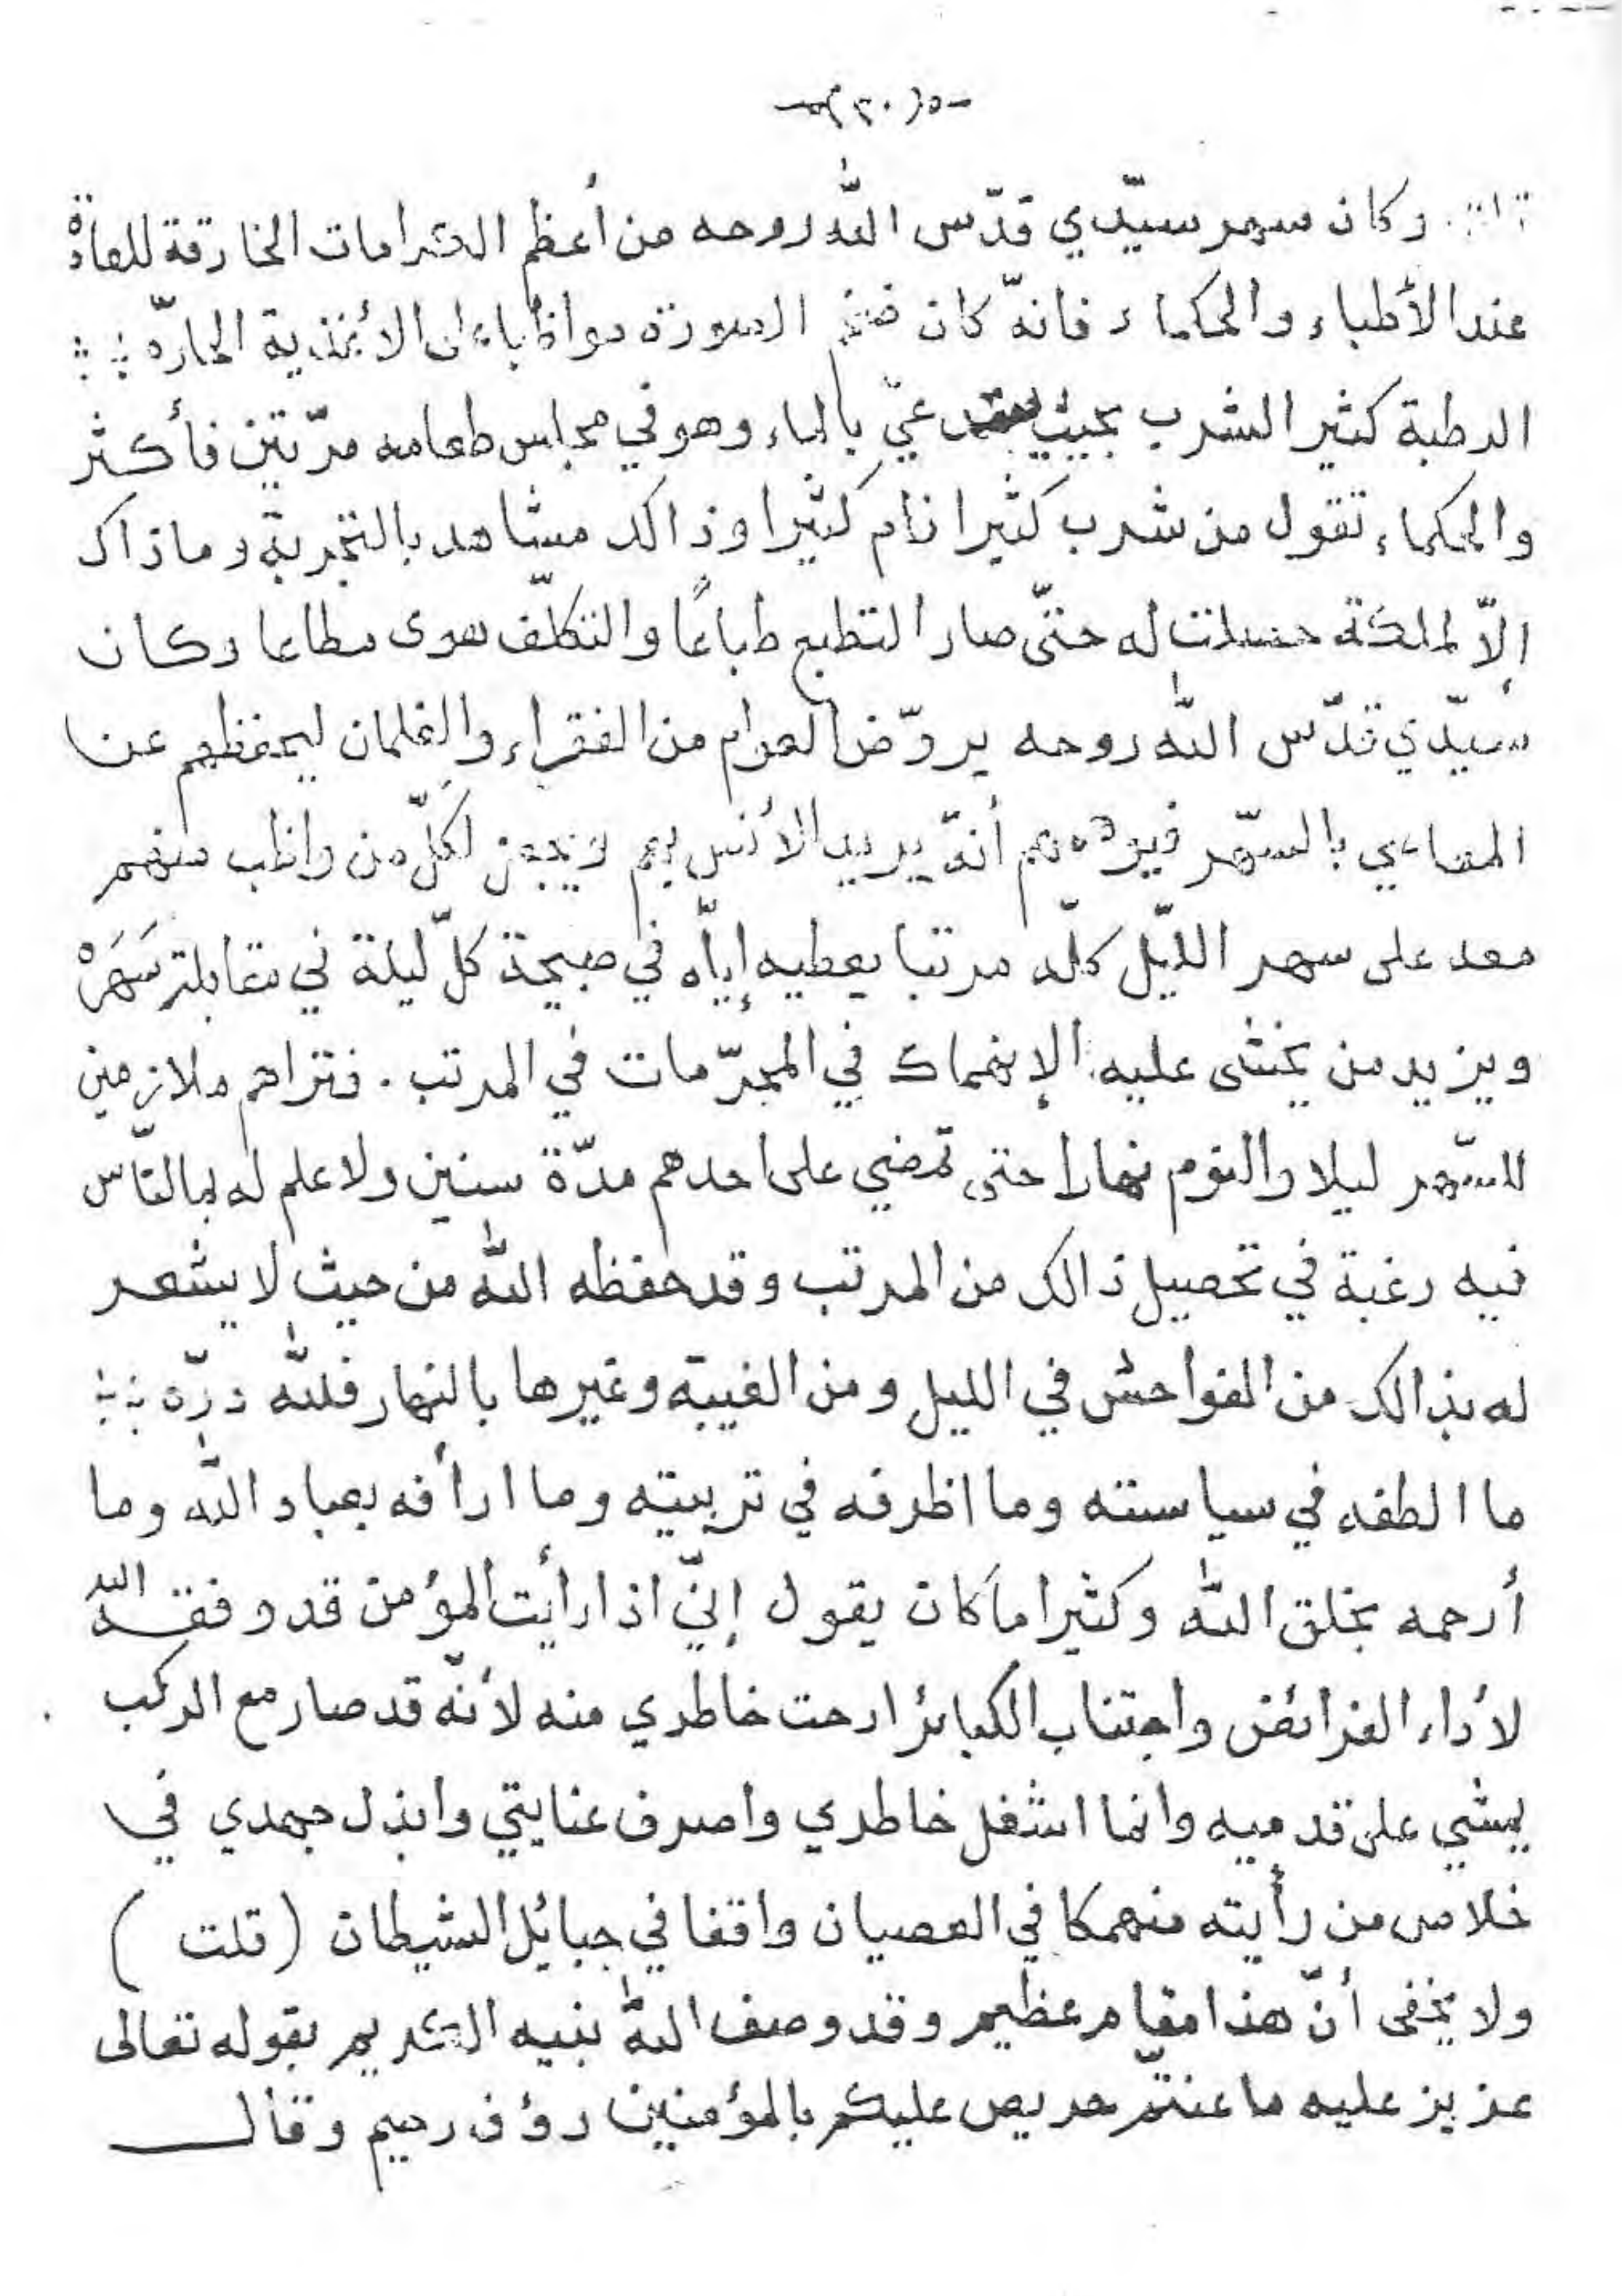 -٥(٣٠)٥-
وكان سهر سيّدي قدّس اللّه روحه من أعظم الكرامات الخارقة للعادة
عند الأطباء والحكماء فانهّ كان ضخم الصورة مواظبا على الأغذية الحارّه
الرطبة كثير الشرب بحيث عيّ بالماء وهو في مجلس طعامه مرّتين فأكثر
والحكماء تقول من شرب كثيرا نام كثيرا وذالك مشاهد بالتجربة وما ذاك
إلاّ لملكة حصلت له حتّى صار التطبع طباعًا والتكلّف هوى مطاعا وكان
سيّدي قدّس اللّه روحه يروّض العوام من الفقراء والغلمان ليحفظهم عن
المعاصي بالسّهر فيوهمهم أنهّ يريد الأنس بهم ويجعل لكلّ من واظب منهم
معه على سهر اللّيل كلّه مرتبا يعطيه إيّاه في صبيحة كلّ ليلة في مقابلة سَهَرِهْ
ويزيد من يخشى عليه الإنهماك في المحرّمات في المرتب . فتراهم ملازمين
للسّهر ليلا والنوم نهارا حتى تمضي على احدهم مدّة سنين ولا علم له بما النّاس
فيه رغبة في تحصيل ذالك من المرتب وقد حفظه اللّه من حيث لا يشعر
له بذالك من الفواحش في الليل ومن الغيبة وغيرها بالنهار فللّه درّه
ما الطفه في سياسته وما اظرفه في تربيته وما ارأفه بعباد اللّه وما
أرحمه بخلق اللّه وكثيرا ما كان يقول إنّي اذا رأيت المؤمن قد وفقه اللّه
لأداء الفرائض واجتناب الكبائر ارحت خاطري منه لأنّه قد صار مع الركب
يمشي على قدميه وانما اشغل خاطري واصرف عنايتي وابذل جهدي في
خلاص من رأيته منهمكا في العصيان واقفا في حبائل الشيطان (قلت )
ولا يخفى أنّ هذا مقام عظيم وقد وصف اللّه نبيه الكريم بقوله تعالى
عزيز عليه ما عنتّم حريص عليكم بالمؤمنين رؤف رحيم وقال